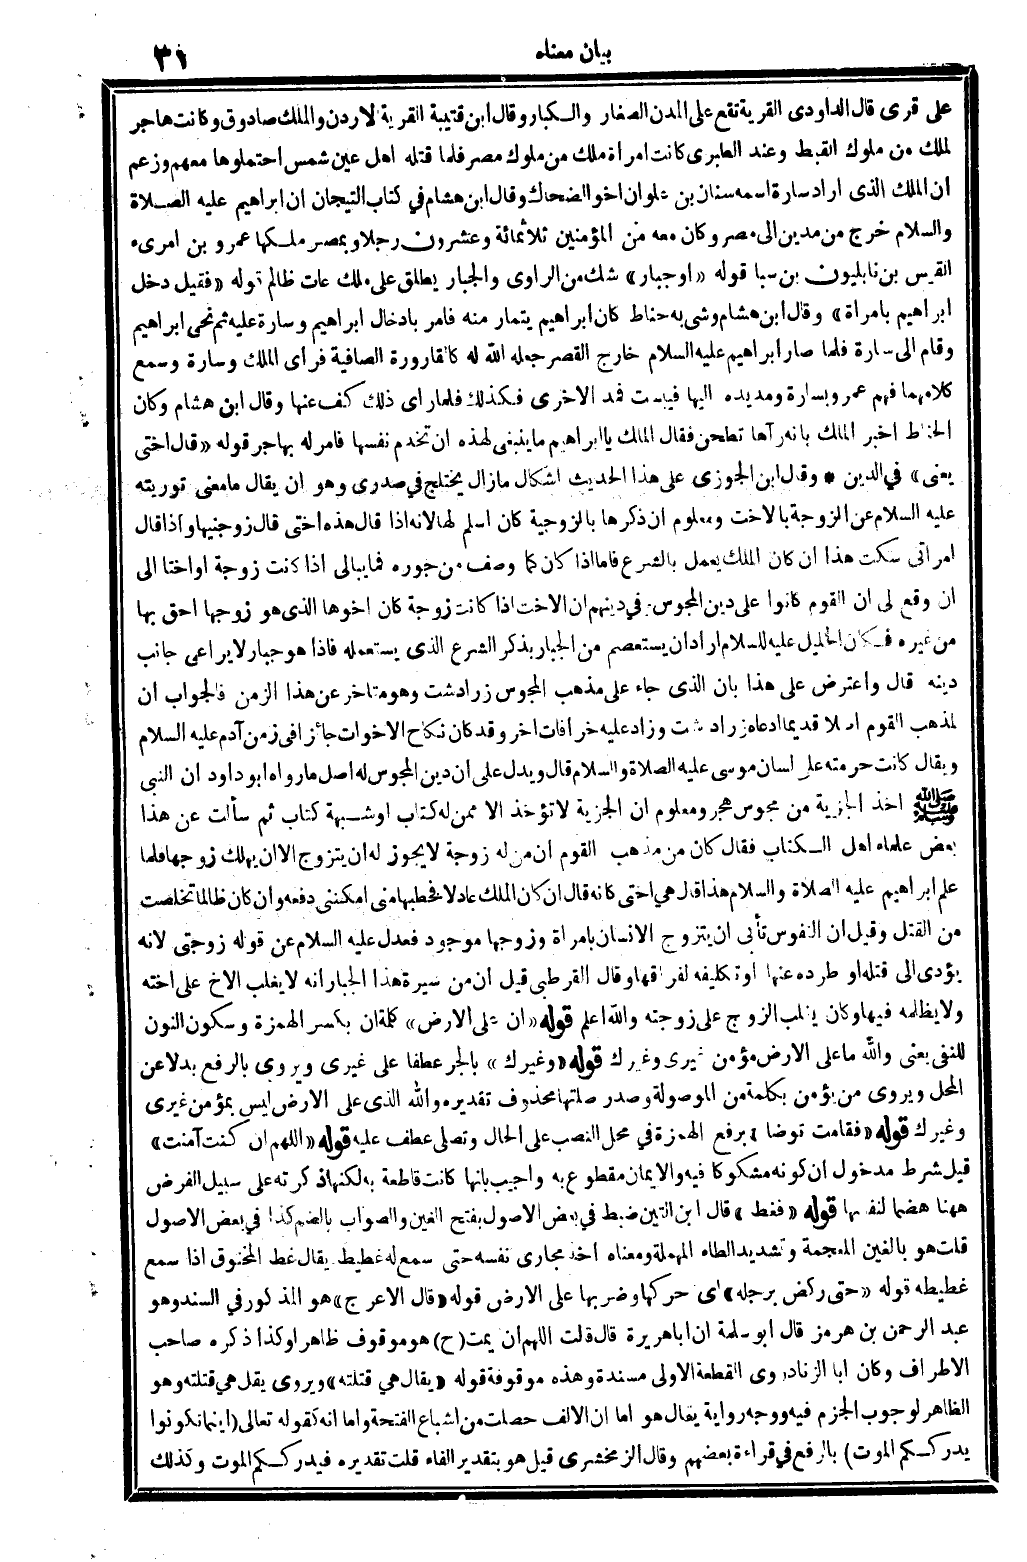 بيان معناه
٣١
على قرى قال الداودى القرية تقع على المدن الصغار والكبار وقال ابن قتيبة القرية الاردن والملك صادوق وكانت هاجر
لملك من ملوك القبط وعند الطبرى كانت امرأة ملك من ملوك مصر فلما قتله اهل عين شمس احتملوها معهم وزعم
ان الملك الذى اراد سارة اسمه سنان بن علوان اخو الضحاك وقال ابن هشام في كتاب التيجان ان ابراهيم عليه الصلاة
والسلام خرج من مدين الى مصر وكان معه من المؤمنين ثلاثمائة وعشرون رجلا وبمصر ملكها عمرو بن امرىء
القيس بن نابليون بن سبا قوله «اوجبار» شك من الراوى والجبار يطلق على ملك عات ظالم قوله «فقيل دخل
ابراهيم بامرأة» وقال ابن هشام وشى به حناط كان ابراهيم يتمار منه فامر بادخال ابراهيم وسارة عليه ثم نحى ابراهيم
وقام الى سارة فلما صار ابراهيم عليه السلام خارج القصر جعله الله له كالقارورة الصافية فرأى الملك وسارة وسمع
كلامهما فهم عمرو بسارة ومد يده اليها فيبست فمد الاخرى فكذلك فلما رأى ذلك كف عنها وقال ابن هشام وكان
الحناط اخبر الملك بانه رآها تطحن فقال الملك يا ابراهيم ما ينبغى لهذه ان تخدم نفسها فامر له بهاجر قوله «قال اختى
يعنى» في الدين * وقال ابن الجوزى على هذا الحديث اشكال مازال يختلج في صدرى وهو ان يقال ما معنى توريته
عليه السلام عن الزوجة بالاخت ومعلوم ان ذكرها بالزوجية كان اسلم لها لانه اذا قال هذه اختى قال زوجنيها واذا قال
امرأتى سكت هذا ان كان الملك يعمل بالشرع فاما اذا كان كما وصف من جوره فما يبالى اذا كانت زوجة او اختا الى
ان وقع لى ان القوم كانوا على دين المجوس وفي دينهم ان الاخت اذا كانت زوجة كان اخوها الذى هو زوجها احق بها
من غيره فكان الخليل عليه السلام اراد ان يستعصم من الجبار بذكر الشرع الذى يستعمله فاذا هو جبار لا يراعى جانب
دينه قال واعترض على هذا بان الذى جاء على مذهب المجوس زرادشت وهو متاخر عن هذا الزمن فالجواب ان
لمذهب القوم اصلا قديما ادعاه زرادشت وزاد عليه خرافات اخر وقد كان نكاح الاخوات جائزا في زمن آدم عليه السلام
ويقال كانت حرمته على لسان موسى عليه الصلاة والسلام قال ويدل على ان دين المجوس له اصل ما رواه ابو داود ان النبى
ﷺ اخذ الجزية من مجوس هجر ومعلوم ان الجزية لا تؤخذ الا ممن له كتاب اوشبهة كتاب ثم سألت عن هذا
بعض علماء اهل الكتاب فقال كان من مذهب القوم ان من له زوجة لا يجوز له ان يتزوج الا ان يهلك زوجها فلما
علم ابراهيم عليه الصلاة والسلام هذا قال هي اختى كانه قال ان كان الملك عادلا فخطبها منى امكننى دفعه وان كان ظالما تخلصت
من القتل وقيل ان النفوس تأبى ان يتزوج الانسان بامرأة وزوجها موجود فعدل عليه السلام عن قوله زوجتى لانه
يؤدى الى قتله او طرده عنها او تكليفه لفراقها وقال القرطبى قيل ان من سيرة هذا الجبار انه لا يغلب الاخ على اخته
ولا يظلمه فيها وكان يغلب الزوج على زوجته والله اعلم قوله «ان على الارض» كلمة ان بكسر الهمزة وسكون النون
للنفي يعنى والله ما على الارض مؤمن غيرى وغيرك قوله «وغيرك» بالجر عطفا على غيرى ويروى بالرفع بدلا عن
المحل ويروى من يؤمن بكلمة من الموصولة وصدر صلتها محذوف تقديره والله الذى على الارض ليس بمؤمن غيرى
وغيرك قوله «فقامت توضا» برفع الهمزة في محل النصب على الحال وتصلى عطف عليه قوله «اللهم ان كنت آمنت»
قيل شرط مدخول ان كونه مشكوكا فيه والايمان مقطوع به واجيب بانها كانت قاطعة به لكنها ذكرته على سبيل الفرض
ههنا هضما لنفسها قوله «فغط» قال ابن التين ضبط في بعض الاصول بفتح الغين والصواب بالضم كذا في بعض الاصول
قلت هو بالغين المعجمة وتشديد الطاء المهملة ومعناه اخذ مجارى نفسه حتى سمع له غطيط يقال غط المخنوق اذا سمع
غطيطه قوله «حتى ركض برجله» اى حركها وضربها على الارض قوله «قال الاعرج» هو المذكور في السند وهو
عبد الرحمن بن هرمز قال ابو سلمة ان ابا هريرة قال قالت اللهم ان يمت (ح) هو موقوف ظاهرا وكذا ذكره صاحب
الاطراف وكان ابا الزناد روى القطعة الاولى مسندة وهذه موقوفة قوله «يقال هي قتلته» ويروى يقل هي قتلته وهو
الظاهر لوجوب الجزم فيه ووجه رواية يقال هو اما ان الالف حصلت من اشباع الفتحة واما انه كقوله تعالى (اينما تكونوا
يدرككم الموت) بالرفع في قراءة بعضهم وقال الزمخشرى قيل هو بتقدير الفاء قلت تقديره فيدرككم الموت وكذلك